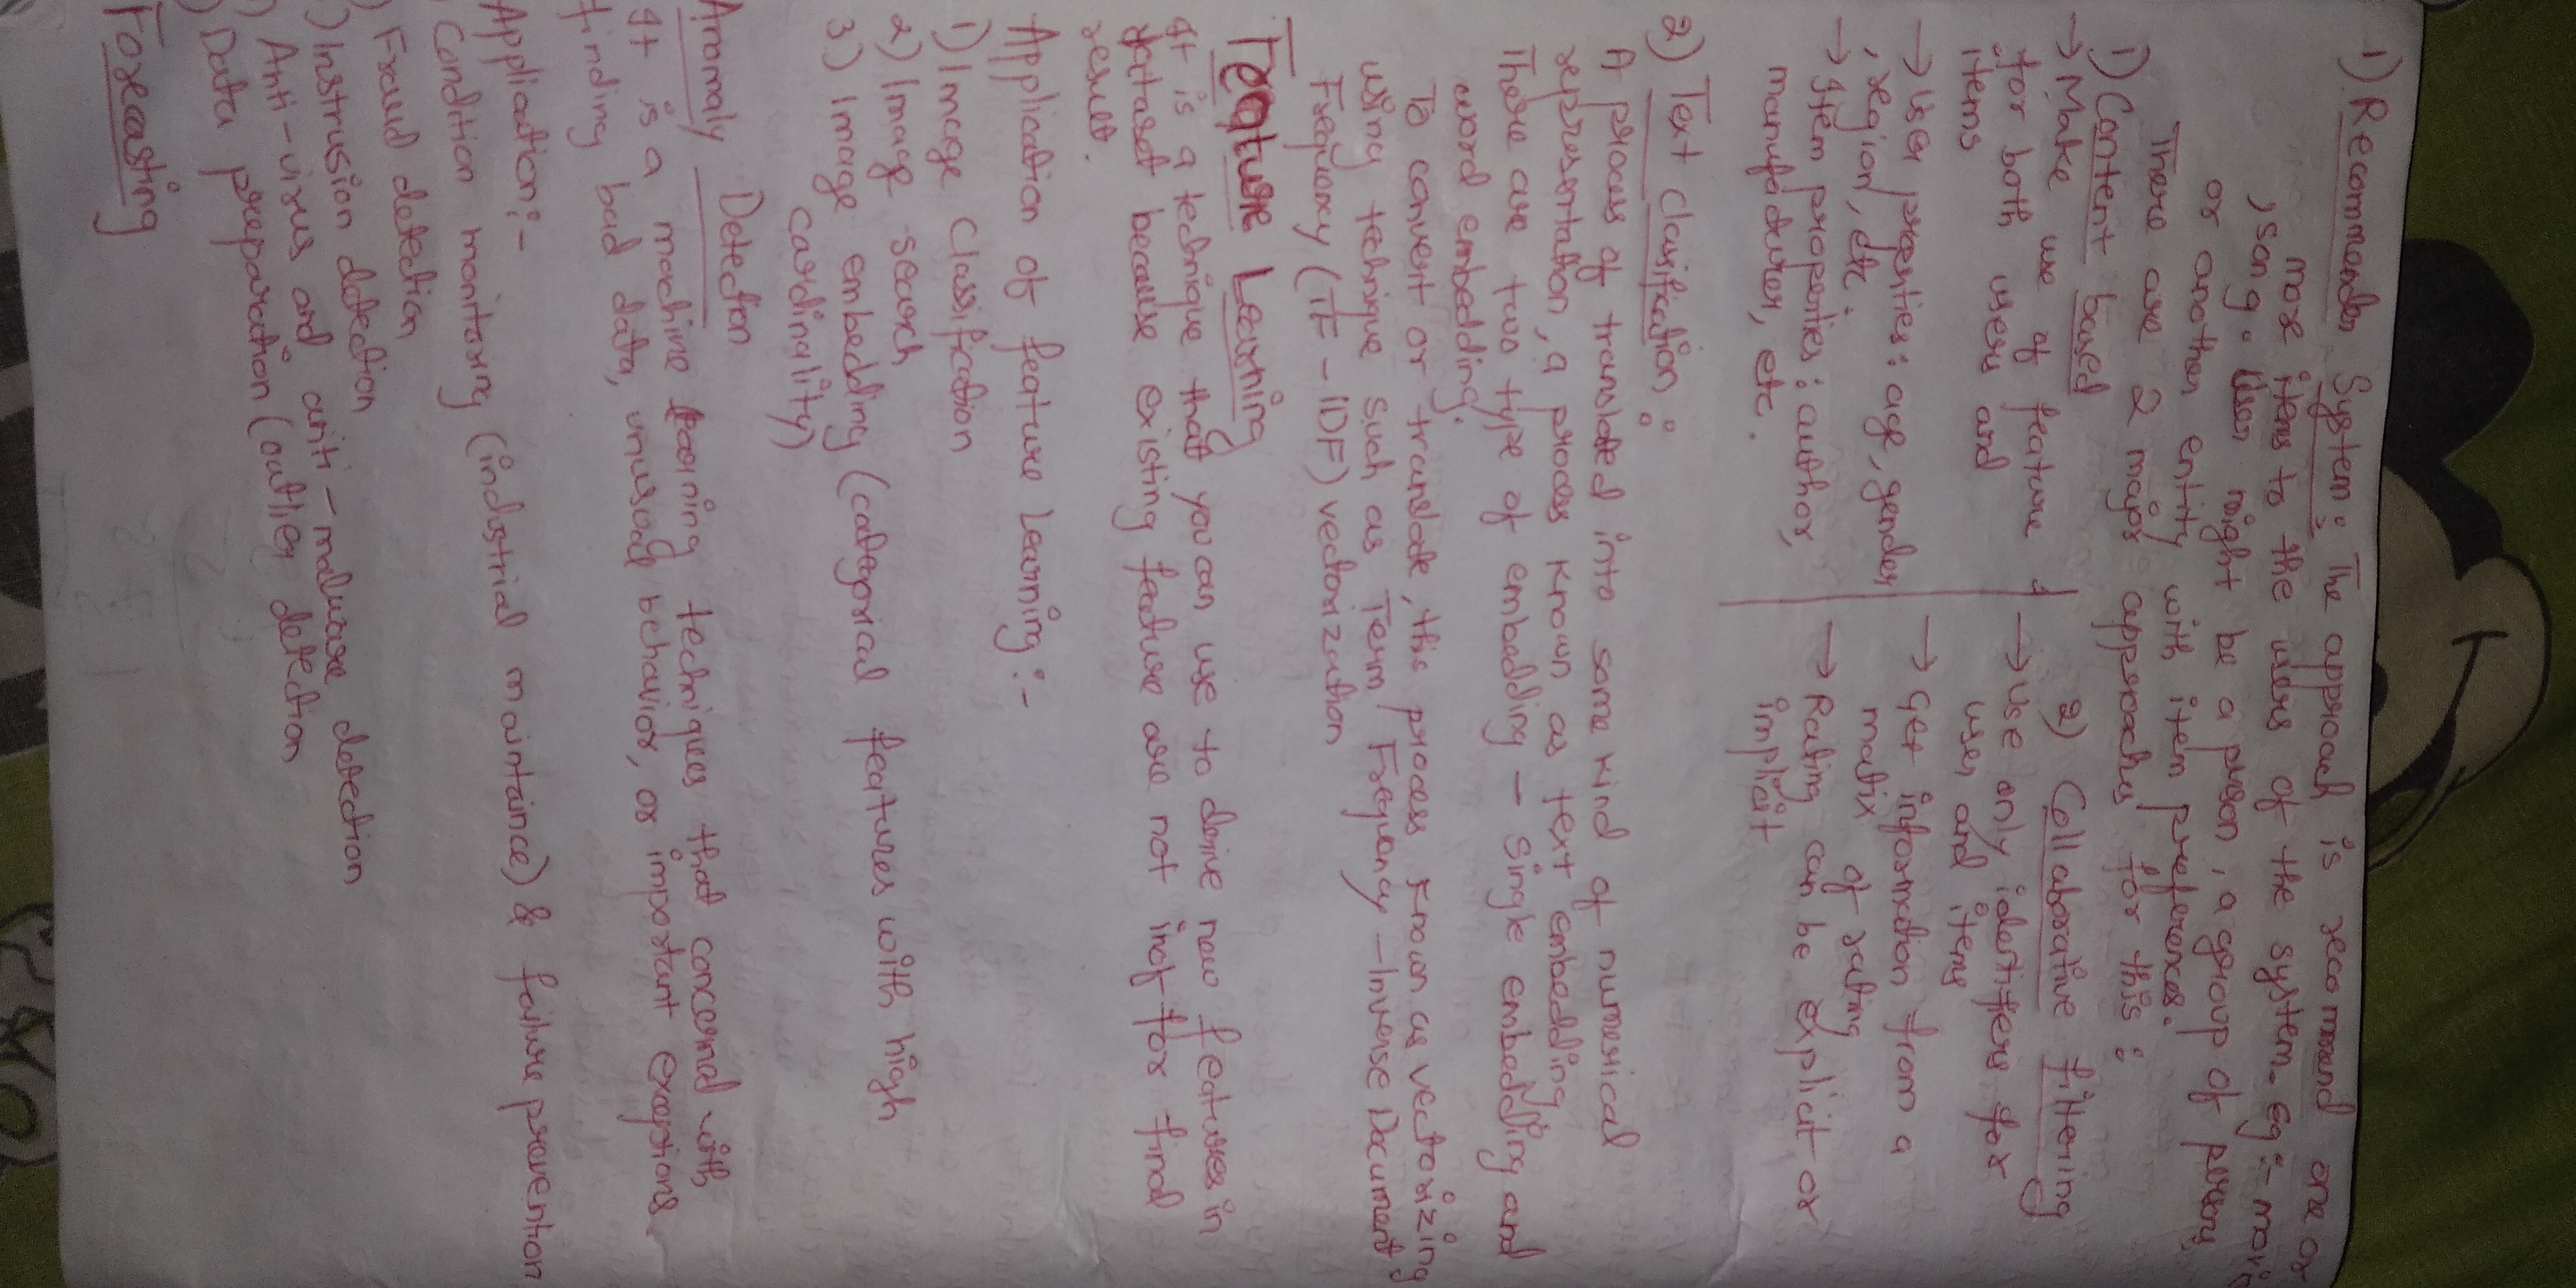 1) Recommender System: The approach is recommend one or
more items to the users of the system. eg:- movi
, song. User might be a person, a group of person,
or another entity with item preferences.
There are 2 major approaches for this:
1) Content based
→ Make use of feature
for both users and
items
→ user properties: age, gender
, region, etc.
→ item properties: author,
manufacturer, etc.
2) Collaborative filtering
→ Use only identifiers for
user and items
→ Get information from a
matrix of rating
→ Rating can be explicit or
implicit
2) Text classification:
A process of translated into some kind of numerical
representation, a process known as text embedding
There are two type of embedding - single embedding and
word embedding.
To convert or translate, this process known as vectorizing
using technique such as Term Frequency - Inverse Document
Frequency (TF-IDF) vectorization
Feature Learning
It is a technique that you can use to derive new features in
dataset because existing feature are not inof for final
result.
Application of feature learning:-
1) Image classification
2) Image search
3) Image embedding (categorial features with high
cardinality)
Anomaly Detection
It is a machine learning techniques that concernd with
finding bad data, unusual behavior, or important exceptions
Application:-
Condition monitoring (industrial maintaince) & failure prevention
) Fraud detection
) Instrusion detection
) Anti-virus and anti-malware detection
) Data preparation (outlier detection
Forecasting